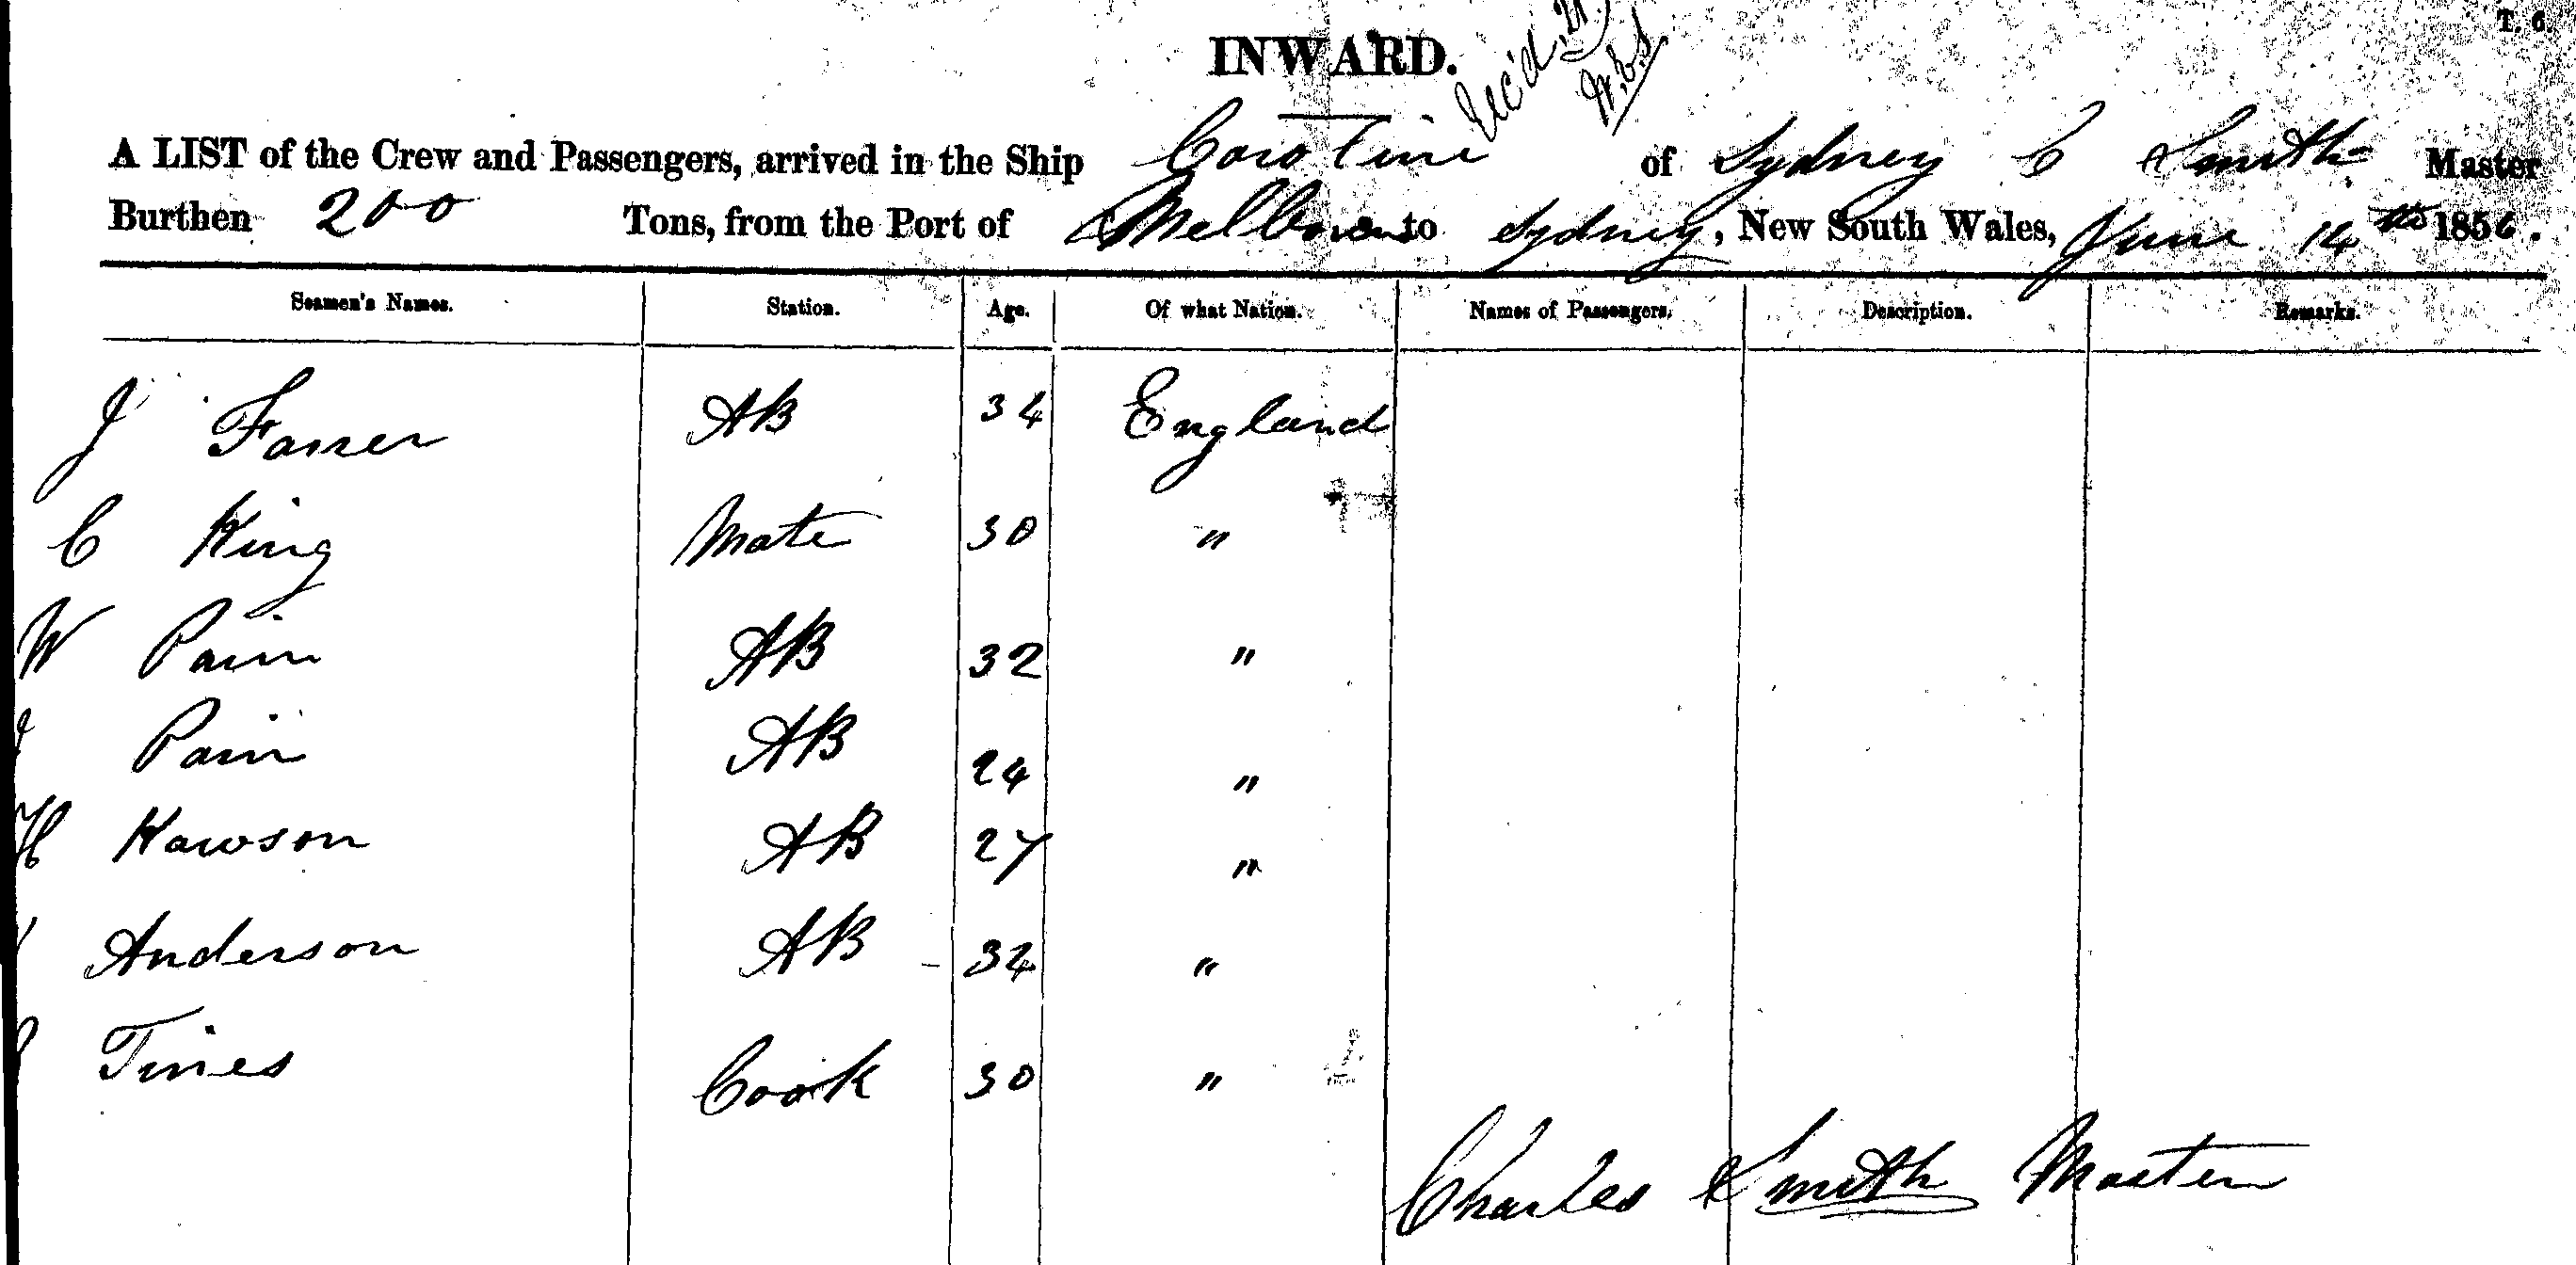 T. 6.
INWARD.
A LIST of the Crew and Passengers, arrived in the Ship Caroline of Sydney C Smith Master
Burthen 200 Tons, from the Port of Melbourne to Sydney, New South Wales, June 14th 1856.
Seamen's Names. Station. Age. Of what Nation. Names of Passengers. Description. Remarks.
J Farrer AB 34 England
C King Mate 30 "
W Pain AB 32 "
J Pain AB 24 "
H Hawson AB 27 "
Anderson AB 34 "
Tines Cook 30 "
Charles Smith Master